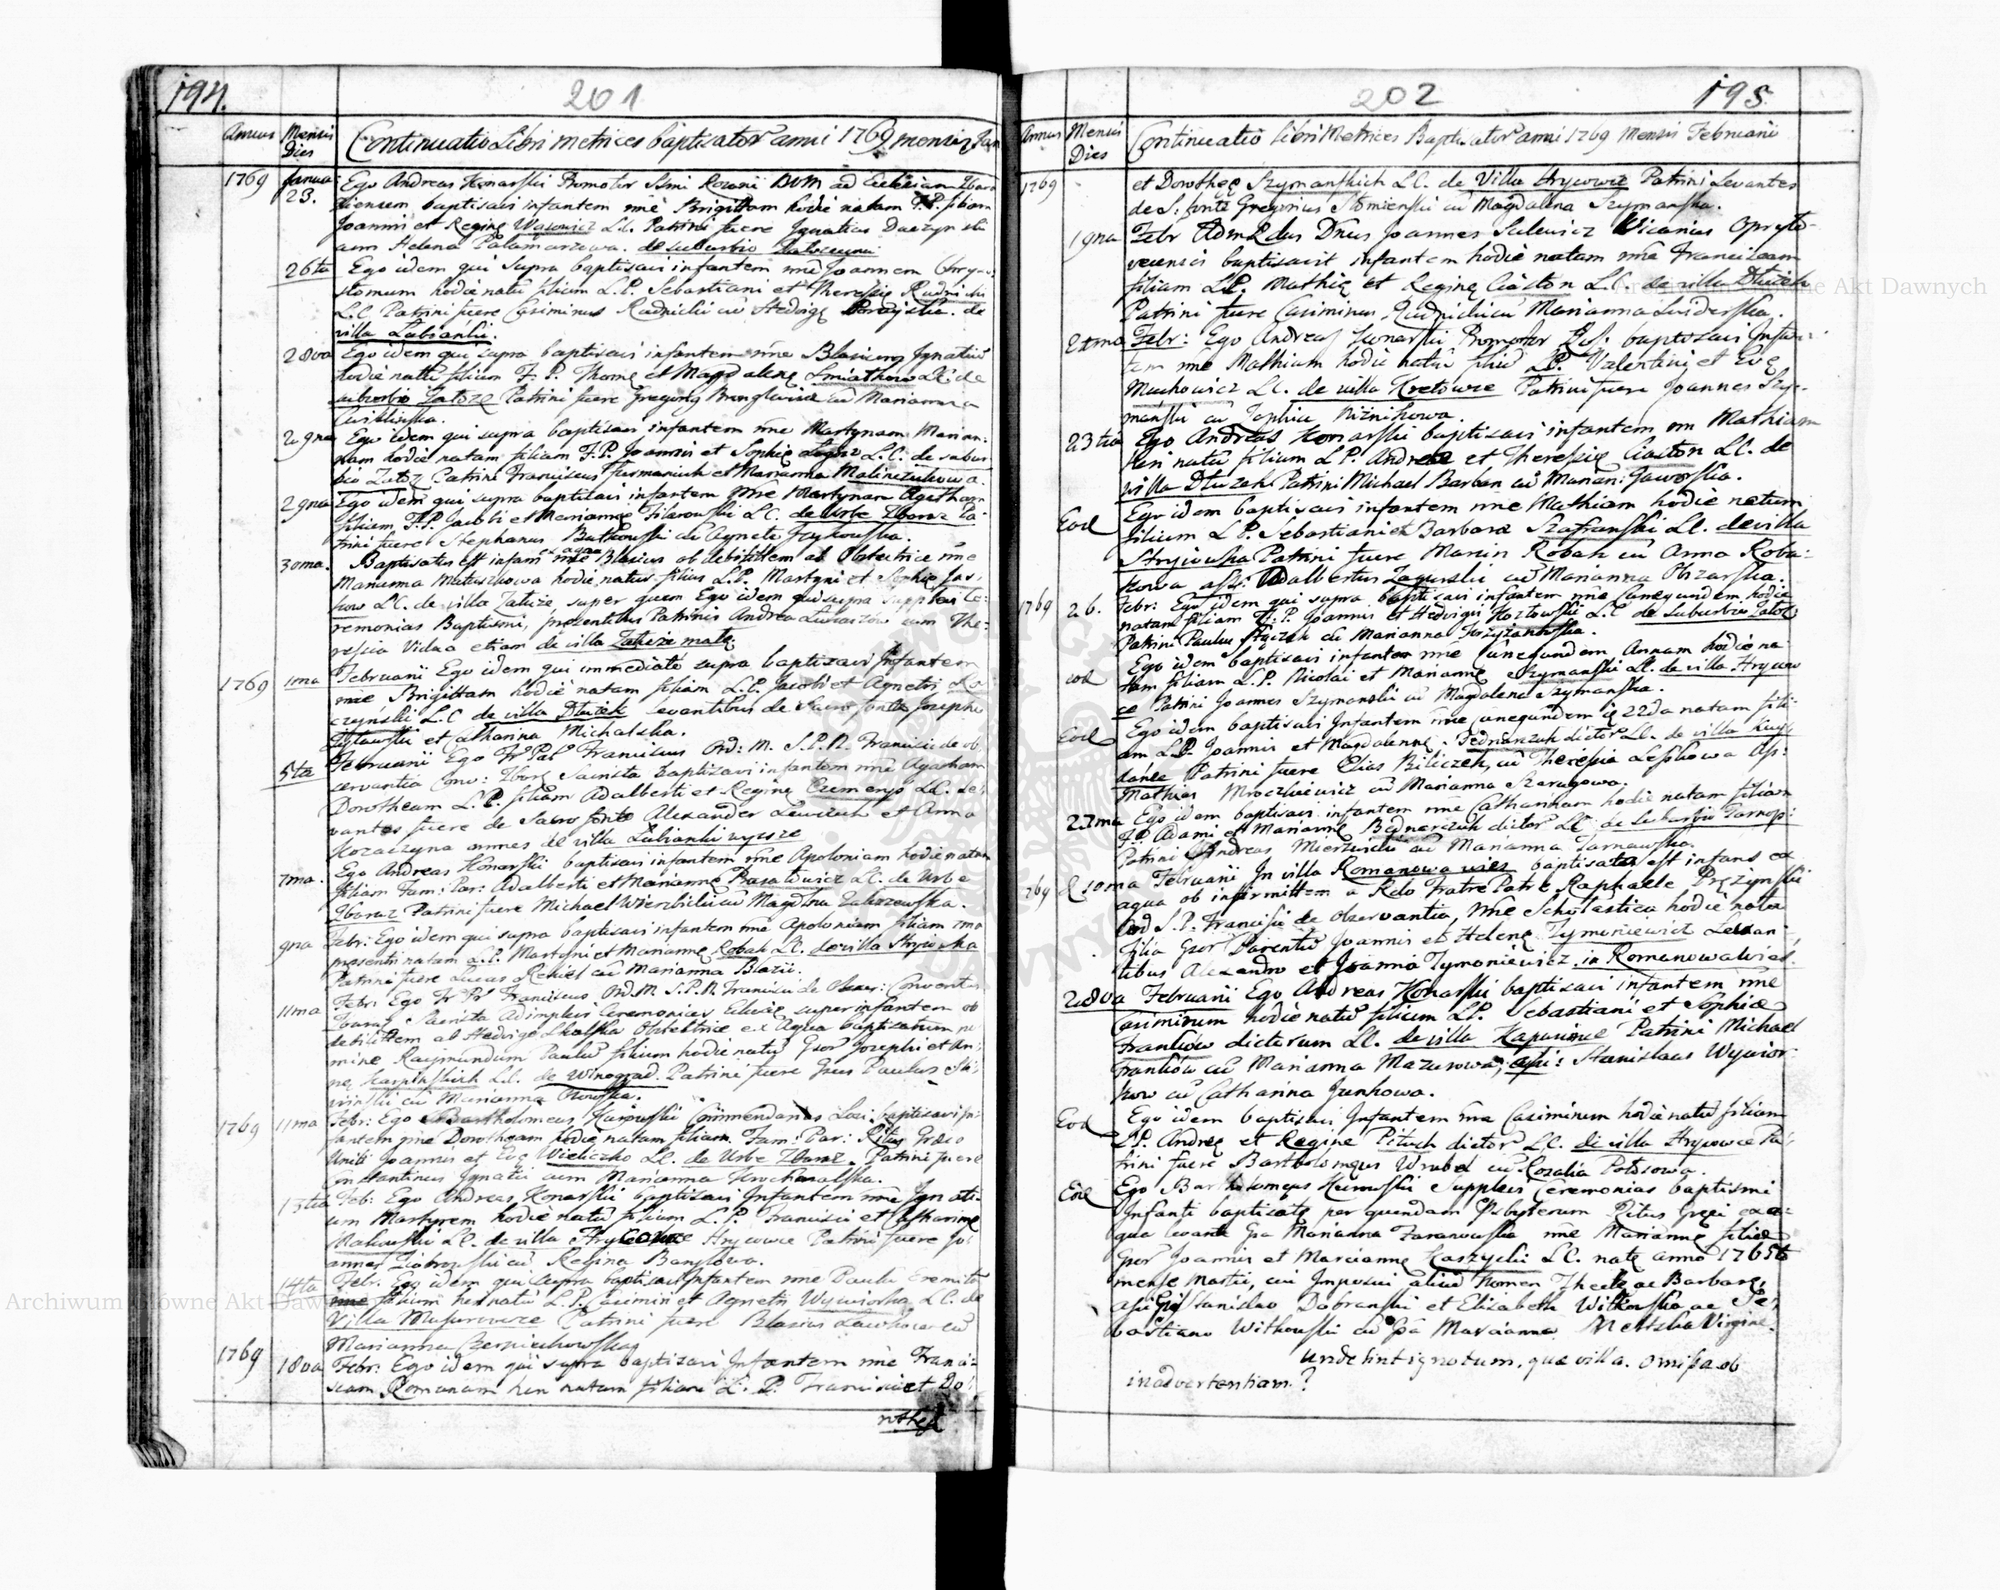 194.
201
Annus Mensis Dies
Continuatio Libri metrices baptisator anni 1769 mensis Jan
1769 Janua: 23.
Ego Andreas Konarski Promotor Ssmi Rosarii BVM ad Ecclesiam Zbara
ziensem baptisavi infantem nne Brigittam hodie natam F.P. filiam
Joannis et Reginę Wąsowicz LC. Patrini fuere Ignatius
cum Helena Palamarzowa. de suburbio
26ta Ego idem qui supra baptisavi infantem nne Joannem Chryso
stomum hodie natu filium L.P. Sebastiani et Theresię Rudnicki
L.C. Patrini fuere Casimirus Rudnicki cu Hedvige de
villa Łubianki.
28va Ego idem qui supra baptisavi infantem nne Blasium Ignatiu
hodie natu filium F. P. Thomę et Magdalenę LC. de
suburbio Patrini fuere Gregorius cu Marianna
Cwiklinska.
29na Ego idem qui supra baptisavi infantem nne Martynam Marian:
nam hodie natam filiam F.P. Joannis et Sophię L.C. de subur
bio Patrini Franciscus Furmaniuk et Marianna Malinczukowa.
29na Ego idem qui supra baptisavi infantem nne Martynam Agatham
filiam F.P. Jacobi et Mariannę Filarowski LC. de Urbe Zbaraz Pa
trini fuere Stephanus Butkowski cu Agnete
30ma. Baptisatus est infans ex aqua nne Blasius ob debilittem ab Obstetrice nne
Marianna Matuszkowa hodie natus filius L.P. Martyni et Sophię Jas:
kow LC. de villa Załuże, super quem Ego idem qui supra supplevi Ce:
remonias Baptismi, pręsentibus Patrinis Andrea Łukaszow cum The:
resia Vidua etiam de villa Załuże małe
1769 1ma Februarii Ego idem qui immediate supra baptisavi Infantem
nne Brigittam hodie natam filiam L.P. Jacobi et Agnetis
L.C de villa Dłużek Levantibus de Sacro fonte Josepho
et Catharina Michalska.
5ta Februarii Ego Fr Pal Franciscus Ord: M. S.P.N. Francisci de ob
servantia Conv: Zbara Sacrista baptizavi infantem nne Agatham
Dorotheam L. P. filiam Adalberti et Reginę LC. Le
vantes fuere de Sacro fonte Alexander Lewicki et Anna
Kozaczyna omnes de villa Łubianki wyższe
7ma. Ego Andreas Konarski baptisavi infantem nne Apoloniam hodie natam
filiam Fam: Par: Adalberti et Mariannę LC. de Urbe
Zbaraz Patrini fuere Michael Wierzbicki cu Magdlna
9na Febr: Ego idem qui supra baptisavi infantem nne Apoloniam filiam 7ma
pręsentis natam L.P. Martyni et Mariannę Robak LC. de villa Stryiowka
Patrini fuere Lucas cu Marianna Blazii.
11ma Febr: Ego Fr Pr Franciscus Ord.M. S.P.N. Francisci de Obser: Conventus
Zbaraz Sacrista adimplevi Ceremonias Ecclesię super infantem ob
debilittem ab Hedvige Skalska Obstetrice ex Aqua baptisatum no
mine Raymundum Paulu filium hodie natu Gsor Josephi et An:
nę Karpinskich LC. de Winograd. Patrini fuere Gsus Paulus
cu Marianna
1769 11ma Febr: Ego Bartholomeus Commendarius Loci baptisavi In:
fantem nne Dorotheam hodie natam filiam Fam: Par: Ritus Gręco
Uniti Joannis et Evę Wieliczko LC. de Urbe Zbaraz. Patrini fuere
Constantinus Ignatii cum Marianna
13tia Feb: Ego Andreas Konarski baptisavi Infantem nne Ignati:
um Martyrem hodie natu filium L.P. Francisci et Catharinę
Makowski LC. de villa Hrycowce Patrini fuere Jo:
annes cu Regina
14ta Febr: Ego idem qui supra baptisavi Infantem nne Paulu Eremita
filium heri natu L.P. Casimiri et Agnetis LC. de
Villa Patrini fuere Blasius cu
Marianna Czerniechowska
1769 18va Febr: Ego idem qui supra baptisavi Infantem nne Franci:
scam Romanam heri natam filiam L. P. Francisci et Do:
rotheę
202
195.
Annus Mensis Dies
Continuatio Libri Metrices Baptisator anni 1769 Mensis Februarii
1769 et Dorotheę Szymanskich LC. de Villa Hrycowce Patrini Levantes
de S: fonte Gregorius cu Magdalena Szymanska.
19na Febr Admdus Rdus Dnus Joannes Vicarius
baptisavit infantem hodie natam nne Franciscam
filiam LP. Mathię et Reginę Ciaston LC. de villa Dłużek
Patrini fuere Casimirus Rudnicki cu Marianna Swiderska.
Febr: Ego Andreas Konarski Promotor baptisavi Infan:
tem nne Mathiam hodie natu filiu LP. Valentini et Evę
Muchowicz LC. de villa Kretowce Patrini fuere Joannes Szy:
manski cu Sophia
23tia Ego Andreas Konarski baptisavi infantem nne Mathiam
heri natu filium LP. Andreę et Theresię Ciaston LC. de
villa Dłużek Patrini Michael Barban cu Marian: Jaworska.
Eod Ego idem baptisavi infantem nne Mathiam hodie natum
filium L P. Sebastiani et Barbarę Szafranski LC. de villa
Stryiowka Patrini fuere Marcin Robak cu Anna Roba:
kowa ass: Adalbertus Zagurski cu Marianna
1769 26. Febr: Ego idem qui supra baptisavi infantem nne Cunegundem hodie
natam filiam F. P. Joannis et Hedvigis Kozłowski LC de Suburbio
Patrini Paulus cu Marianna Krzyżanowska.
eod Ego idem baptisavi infantem nne Cunegundem Annam hodie na
tam filiam L.P. Nicolai et Mariannę Szymanski LC. de villa Hrycow
ce Patrini Joannes Szymanski cu Magdalena Szymanska.
Eod Ego idem baptisavi Infantem nne Cunegundem 22da natam fili:
am LP. Joannis et Magdalenę Bednarczuk dictor LC. de villa
Patrini fuere Elias Biliczek, cu Theresia Ass:
Mathias Mroczkiewicz cu Marianna Szaragowa.
27ma Ego idem baptisavi infantem nne Catharinam hodie natam filiam
F.P. Adami et Mariannę Bednarczuk dictor LC. de Suburbio Tarnop:
Patrini Andreas Mierzwicki cu Marianna Tarnawska.
769 Februarii In villa Romanowa wies baptisata est infans ex
aqua ob infirmittem a Rdo Fratre Patre Raphaele
Ord S.P. Francisci de Observantia, nne Scholastica hodie nata
filia Gsor Parentu Joannis et Helenę Tymoniewicz Levan:
tibus Alexandro et Joanna Tymoniewicz in Romanowa wies.
28va Februarii Ego Andreas Konarski baptisavi infantem nne
Casimirum hodie natu filium LP. Sebastiani et Sophię
Frankow dictorum LC. de villa Patrini Michael
Frankow cu Marianna Mazurowa, assi: Stanislaus Wywior
kow cu Catharina Junkowa.
Eod Ego idem baptisavi Infantem nne Casimirum hodie natu filium
LP. Andreę et Reginę Pituch dictor LC. de villa Hrycowce Pa:
trini fuere Bartholomęus Wrubel cu Rozalia Potosowa.
Eod Ego Bartholomęus supplevi Ceremonias baptismi
Infanti baptisatę per quendam Presbyterum Ritus Gręci ex a:
qua levante Gsa Marianna Taranowska nne Mariannę filię
Gsor Joannis et Mariannę Karzycki LC. natę anno 1765to
mense Martii, cui Imposui aliud Nomen Theclę ac Barbarę,
Stanislao Dobranski et Elizabeth Witkowska ac Se:
bastiano Witkowski cu Gsa Marianna Virgine.
Unde sint ignotum, quę villa. omissa ob
inadvertentiam.?
Archiwum Główne Akt Dawnych
Archiwum Główne Akt Dawnych